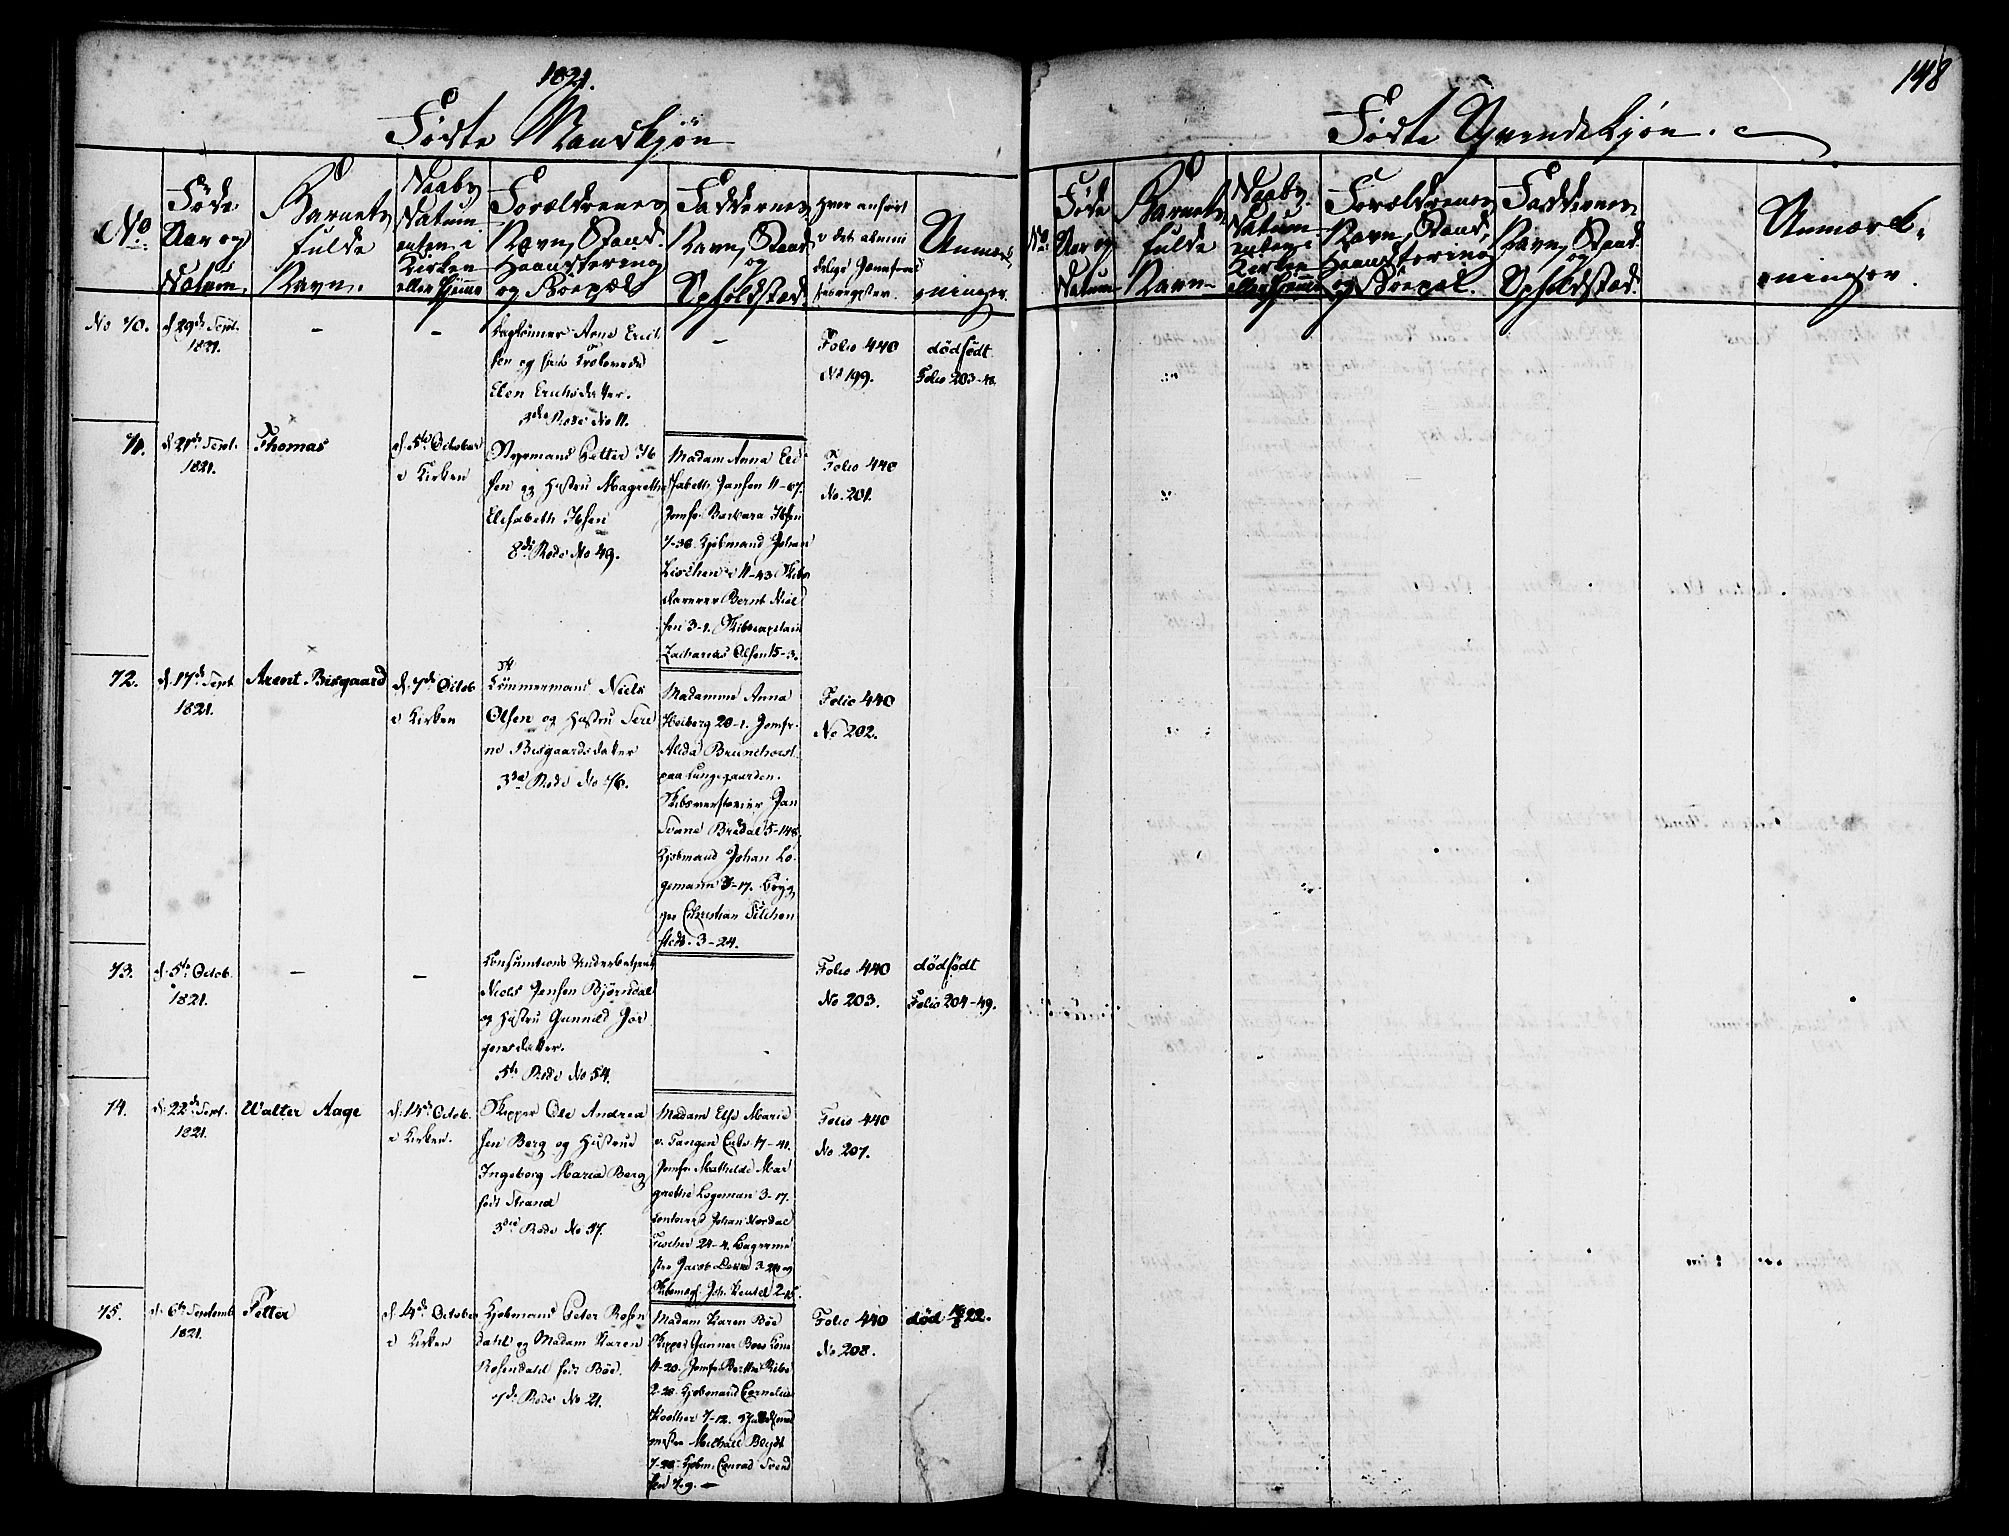 1821.
Fødte Mandkjøn
No.
Føde
Aar og
Datum.
Barnets
fulde
Navn.
Daabs
Datum
enten i
Kirken
eller hjeme
Forældrenes
Navn, Stand
Haandtering
og Boepæl
Faddernes
Navn, Stand
og
Opholdsted.
Hvor anført
i det almin
delige Jevnførel
sesregister.
Anmærk
ninger.
No 70.
d. 29de Sept.
1821.
–
–
Arne Erich
sen og
Elen Erichsdatter.
3die Rode No 11.
–
Folio 440
No 199.
dødfødt
Folio 203-48.
71.
d. 21de Sept.
1821.
Thomas
d. 5te October
i Kirken
Styrmand Petter Ib
sen og Hustru Magrethe
Elisabeth Ibsen
8de Rode No 49.
Madam Anna Eli
sabeth Jansen 11-67.
Jomfr. Barbara Ibsen
7-36. Kjøbmand Johan
11-43. Skibs
Bernt Niel
sen 3-1. Skibscapitain
Zacharias Olsen 15-3.
Folio 440
No. 201.
72.
d. 17de Sept
1821.
Arent Bisgaard
d. 7de Octob
i Kirken
Tømmermand Niels
Olsen og Hustru Sere
ne Bisgaardsdatter
3die Rode No 76.
Madamme Anna
Heiberg 20-1. Jomfr.
Alida Brunchorst
paa Lungegaarden.
Jan
Bredal 5-148
Kjøbmand Johan Lo-
gemann 3-17. Bryg
ger Christian
3-24.
Folio 440
No 202.
73.
d. 5te Octob.
1821.
–
–
Consumtions Underbetjent
Niels Jensen Bjørndal
og Hustru Gunnild Jør
gensdatter.
5te Rode No 54.
Folio 440
No 203.
dødfødt
Folio 204-49.
74.
d. 22de Sept.
1821.
Walter Aage
d. 14de Octob.
i Kirken.
Skipper Ole Andrea
sen Berg og Hustrue
Ingeborg Maria Berg
født Strand
3die Rode No 57.
Madam Else Marie
v. Tangen Enke 17-41.
Jomfr. Mathilde Mar
grethe Logeman 3-17.
Johan Nordal
Fischer 24-4. Bagerme
ster Jacob
Folio 440
No. 207.
75.
d. 6te Septemb
1821.
Petter
d. 14de October
i Kirken
Kjøbmand Peter Rosen
dahl og Madam Karen
Rosendahl født Bøe.
7de Rode No 21.
Madam Karen Bøe
Skipper Gunner Boes Kone
11-20. Jomfr. Berthe
2-28. Kjøbmand Cornelius
7-12.
mester Michael Blydt
7-28. Kjøbm. Conrad Svend
sen 7.9. –
Folio 440
No 208.
død 22.
148
Fødte Qvindekjøn.
No.
Føde
Aar og
Datum
Barnets
fulde
Navn
Daabs
Datum
enten i
Kirken
eller hjemme
Forældrenes
Navn, Stand,
Haandtering
og Boepæl.
Faddernes
Navn, Stand
og
Opholdsted.
Anmærk-
ninger.